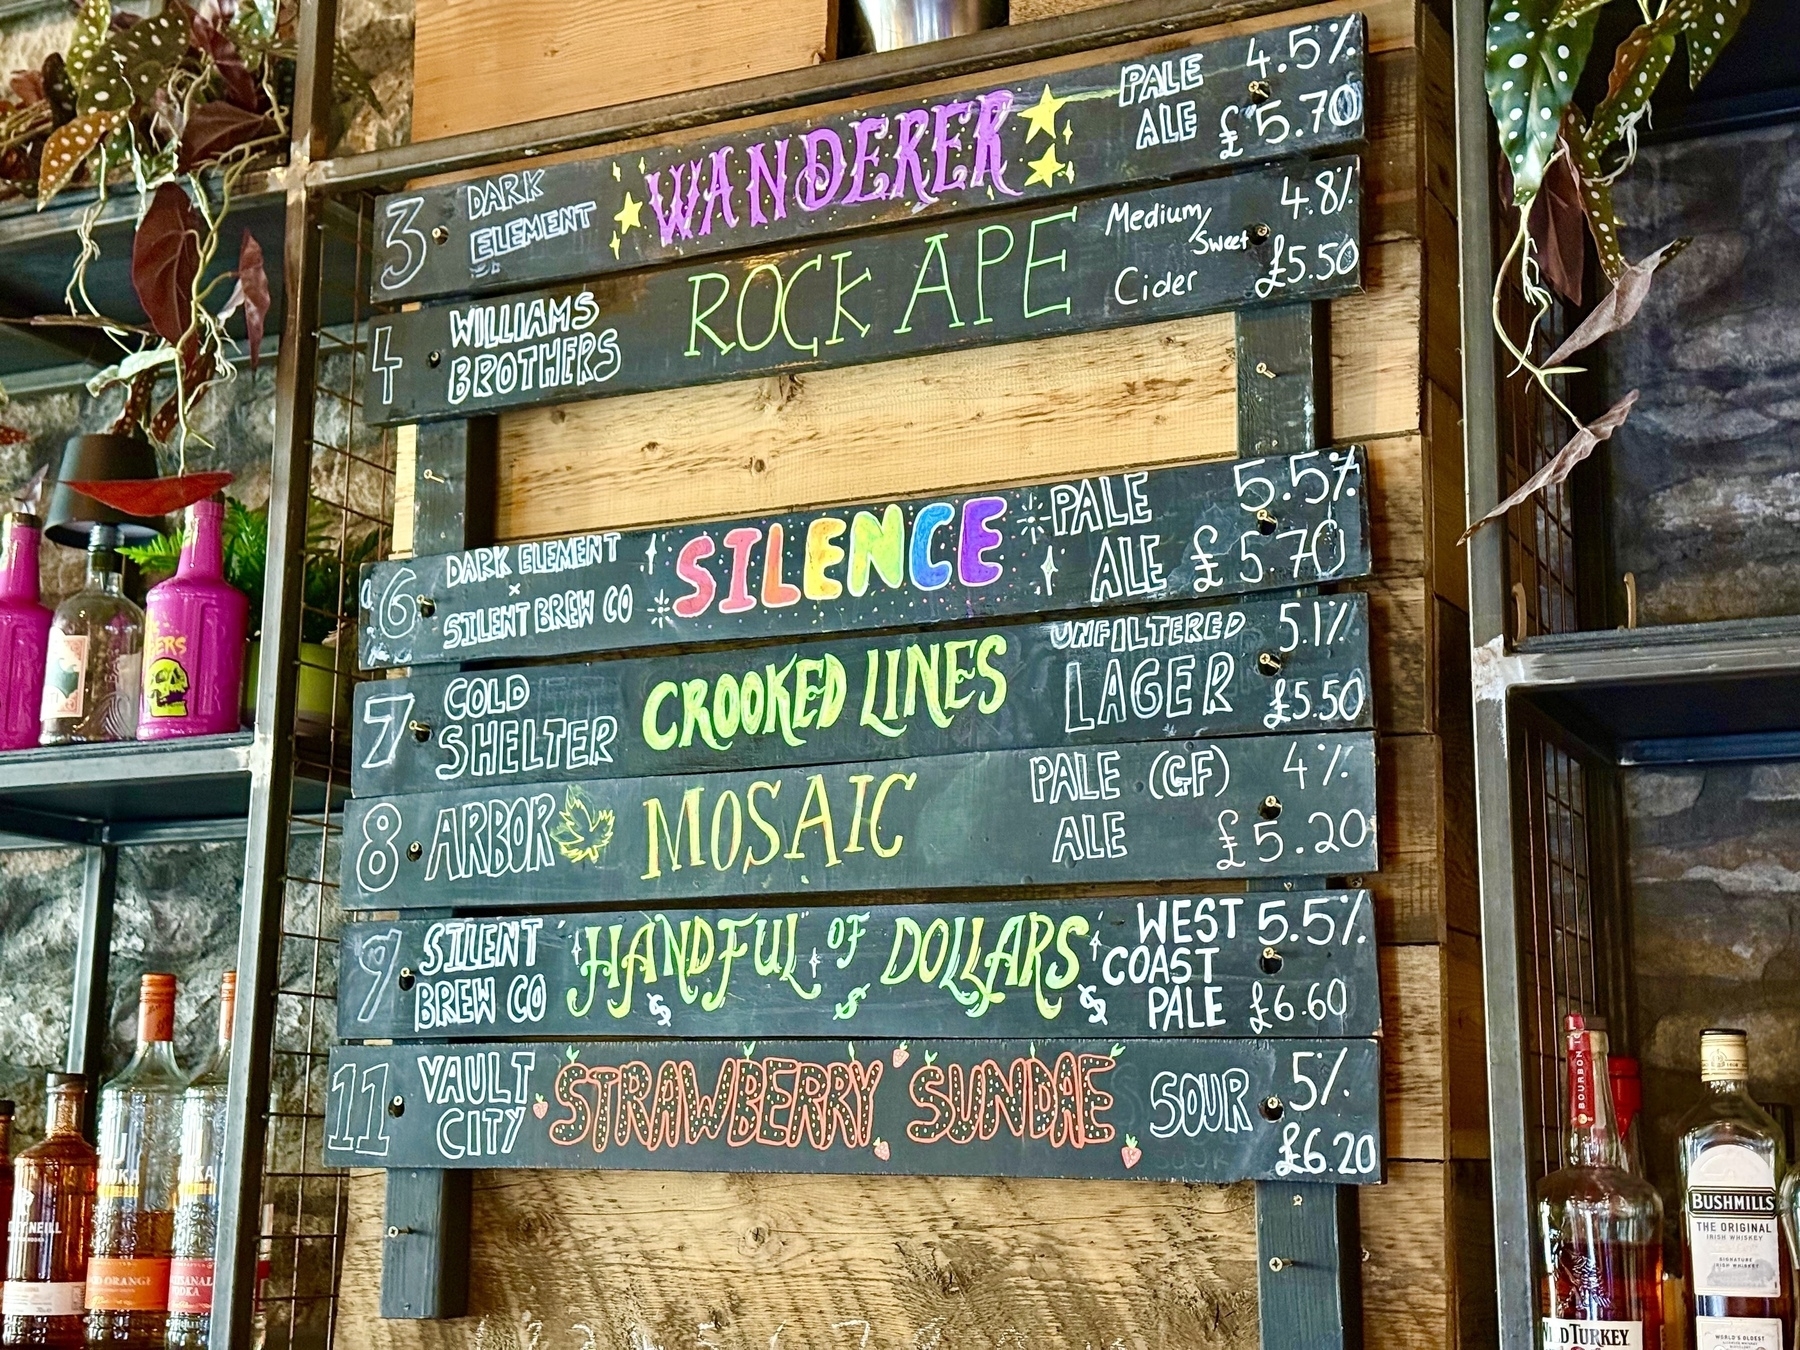 3 DARK ELEMENT WANDERER PALE ALE 4.5% £5.70
4 WILLIAMS BROTHERS ROCK APE Medium/Sweet Cider 4.8% £5.50
6 DARK ELEMENT × SILENT BREW CO SILENCE PALE ALE 5.5% £5.70
7 COLD SHELTER CROOKED LINES UNFILTERED LAGER 5.1% £5.50
8 ARBOR MOSAIC PALE ALE (GF) 4% £5.20
9 SILENT BREW CO HANDFUL OF DOLLARS $ $ $ WEST COAST PALE 5.5% £6.60
11 VAULT CITY STRAWBERRY SUNDAE SOUR 5% £6.20
BOURBON
TURKEY
BUSHMILLS
THE ORIGINAL
IRISH WHISKEY
NEILL
ORANGE
VODKA